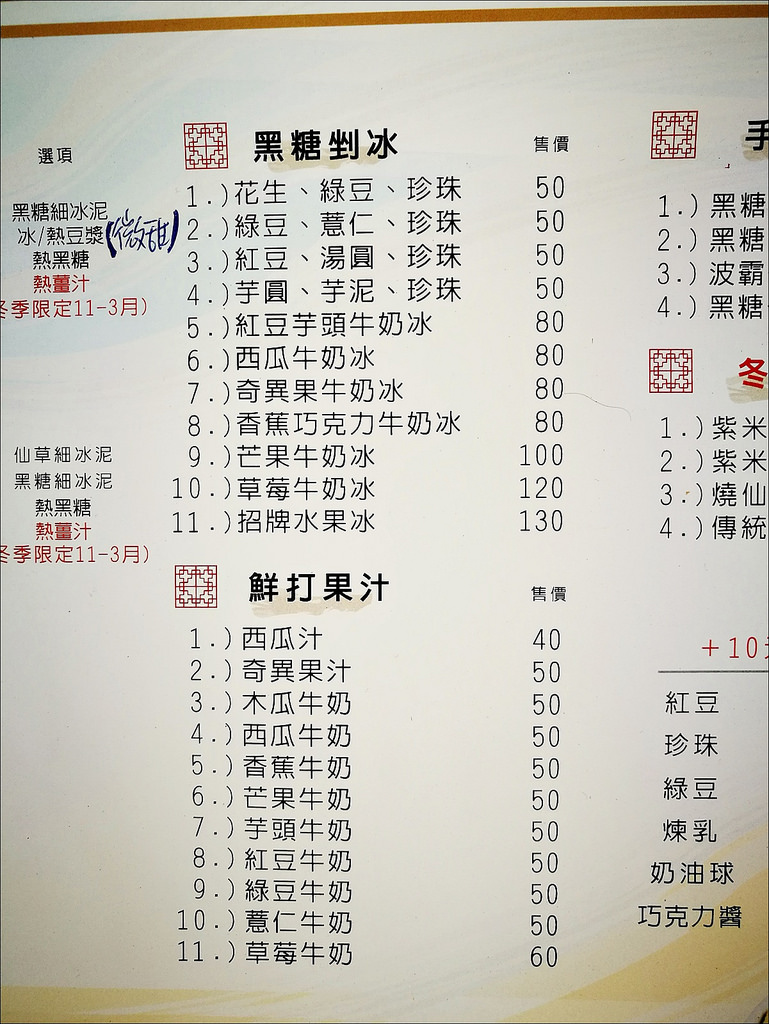 選項
黑糖細冰泥
冰/熱豆漿(微甜)
熱黑糖
熱薑汁
冬季限定11-3月)
仙草細冰泥
黑糖細冰泥
熱黑糖
熱薑汁
冬季限定11-3月)
黑糖剉冰 售價
1.)花生、綠豆、珍珠 50
2.)綠豆、薏仁、珍珠 50
3.)紅豆、湯圓、珍珠 50
4.)芋圓、芋泥、珍珠 50
5.)紅豆芋頭牛奶冰 80
6.)西瓜牛奶冰 80
7.)奇異果牛奶冰 80
8.)香蕉巧克力牛奶冰 80
9.)芒果牛奶冰 100
10.)草莓牛奶冰 120
11.)招牌水果冰 130
鮮打果汁 售價
1.)西瓜汁 40
2.)奇異果汁 50
3.)木瓜牛奶 50
4.)西瓜牛奶 50
5.)香蕉牛奶 50
6.)芒果牛奶 50
7.)芋頭牛奶 50
8.)紅豆牛奶 50
9.)綠豆牛奶 50
10.)薏仁牛奶 50
11.)草莓牛奶 60
手
1.)黑糖
2.)黑糖
3.)波霸
4.)黑糖
冬
1.)紫米
2.)紫米
3.)燒仙
4.)傳統
+10元
紅豆
珍珠
綠豆
煉乳
奶油球
巧克力醬